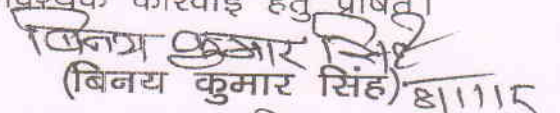 आवश्यक कार्रवाई हेतु प्रेषित।
बिनय कुमार सिंह
(बिनय कुमार सिंह) 8/1/15